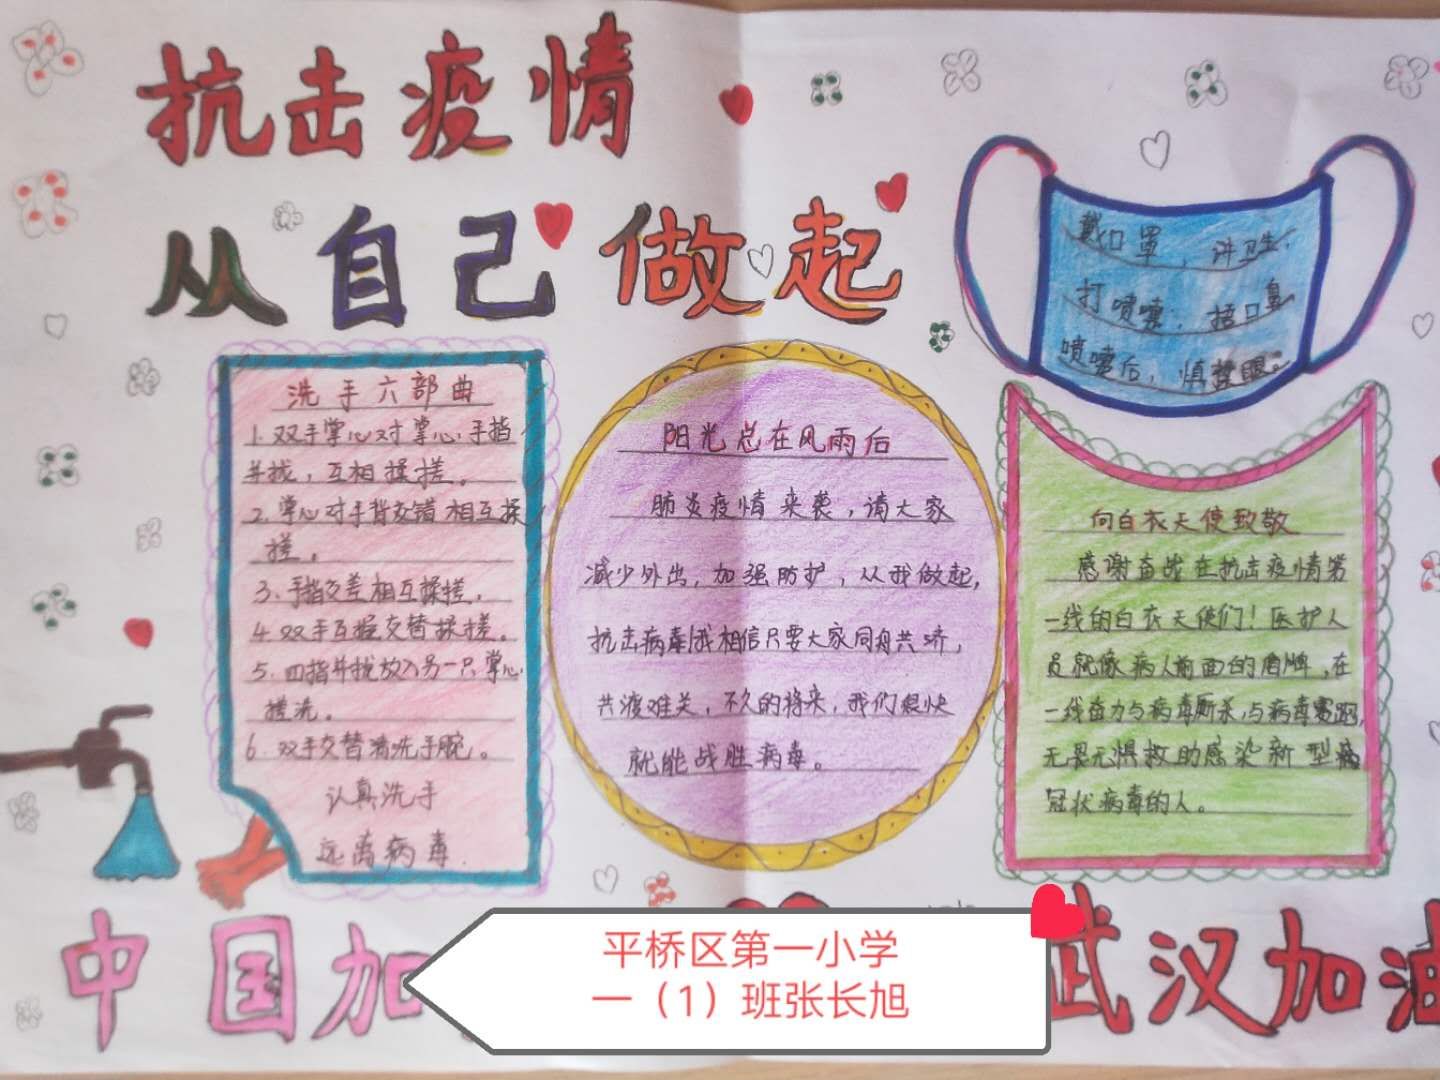 抗击疫情
从自己做起
戴口罩，讲卫生，
打喷嚏，捂口鼻
喷嚏后，慎揉眼。
洗手六部曲
1.双手掌心对掌心，手指
并拢，互相揉搓。
2.掌心对手背交错相互揉
搓。
3.手指交差相互揉搓。
4.双手互握交替揉搓。
5.四指并拢放入另一只掌心
搓洗。
6.双手交替清洗手腕。
认真洗手
远离病毒.
阳光总在风雨后
肺炎疫情来袭，请大家
减少外出，加强防护，从我做起，
抗击病毒!我相信只要大家同舟共济，
共渡难关，不久的将来，我们很快
就能战胜病毒。
向白衣天使致敬
感谢奋战在抗击疫情第
一线的白衣天使们！医护人
员就像病人前面的盾牌，在
一线奋力与病毒厮杀，与病毒赛跑，
无畏无惧救助感染新型病
冠状病毒的人。
中国加
武汉加油
平桥区第一小学
一（1）班张长旭